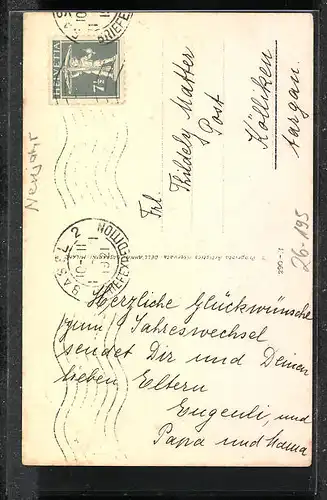 HELVETIA
7½
BRIEFE
Neujahr
Frl.
Thildely Matter
Post
Kölliken
Aargau.
BASEL 2
26-195
Herzliche Glückwünsche
zum Jahreswechsel
sendet Dir und Deinen
lieben Eltern
Eugenli, und
Papa und Mama